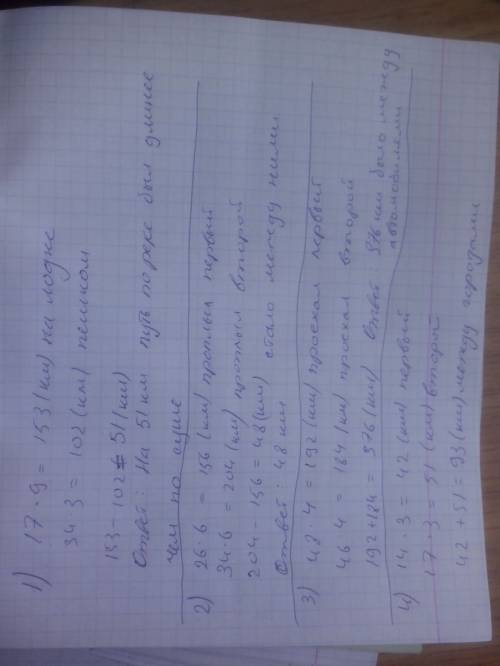 1) 17 · 9 = 153 (км) на лодке
34 · 3 = 102 (км) пешком
153 - 102 = 51 (км)
Ответ: На 51 км путь по реке был длинее
чем по суше
2) 26 · 6 = 156 (км) проплыл первый
34 · 6 = 204 (км) проплыл второй
204 - 156 = 48 (км) стало между ними
Ответ: 48 км
3) 48 · 4 = 192 (км) проехал первый
46 · 4 = 184 (км) проехал второй
192 + 184 = 376 (км) Ответ: 376 км было между
автомобилями
4) 14 · 3 = 42 (км) первый
17 · 3 = 51 (км) второй
42 + 51 = 93 (км) между городами